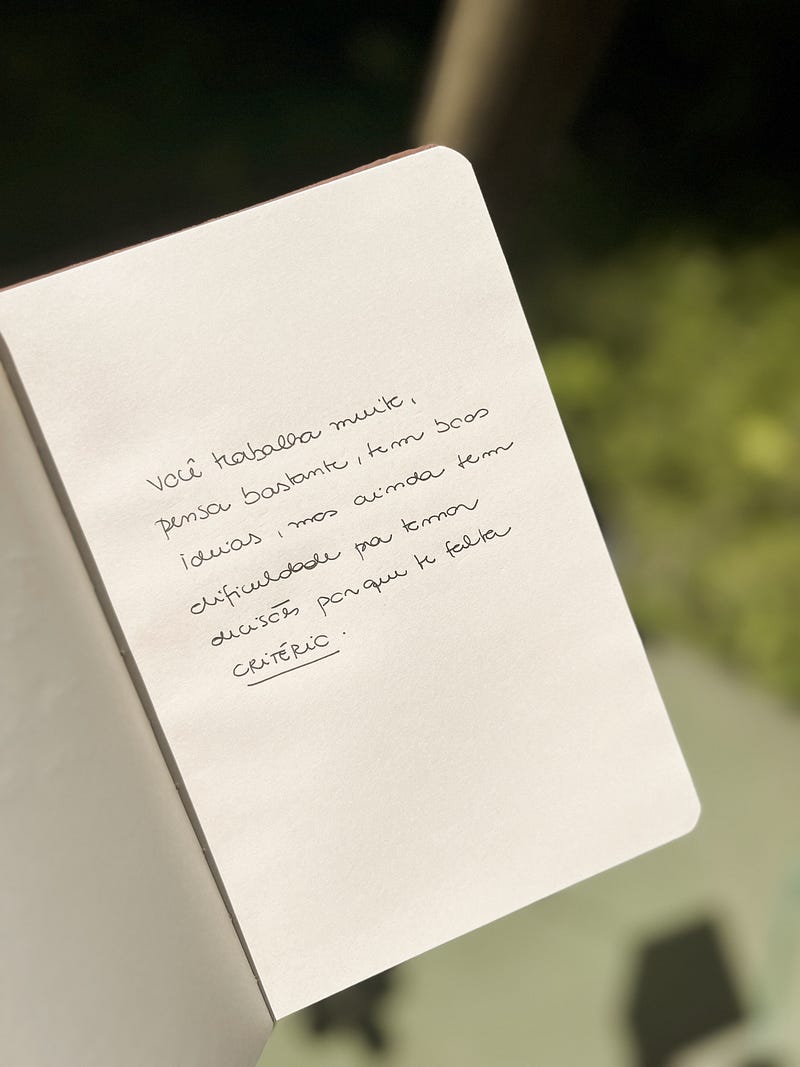 você trabalha muito,
pensa bastante, tem boas
ideias, mas ainda tem
dificuldade pra tomar
decisões porque te falta
CRITÉRIO.